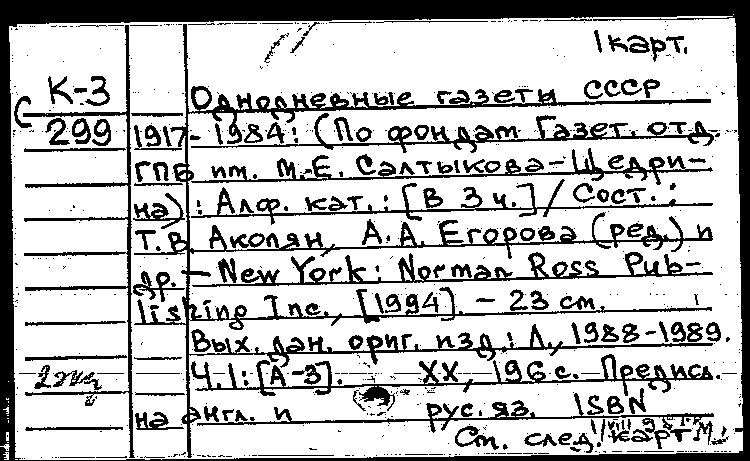 1 карт.
К-3 Однодневные газеты СССР
299 1917-1984: (По фондам Газет. отд.
ГПБ им. М.Е. Салтыкова-Щедри-
на): Алф. кат.: [В 3 ч.] / Сост.:
Т.В. Акопян, А.А. Егорова (ред.) и
др. — New York: Norman Ross Pub-
lishing Inc., [1994]. — 23 см.
Вых. дан. ориг. изд.: Л., 1988-1989.
2 экз Ч. 1: [А-З]. XX, 196 с. Предисл.
на англ. и рус. яз. ISBN
См. след. карт